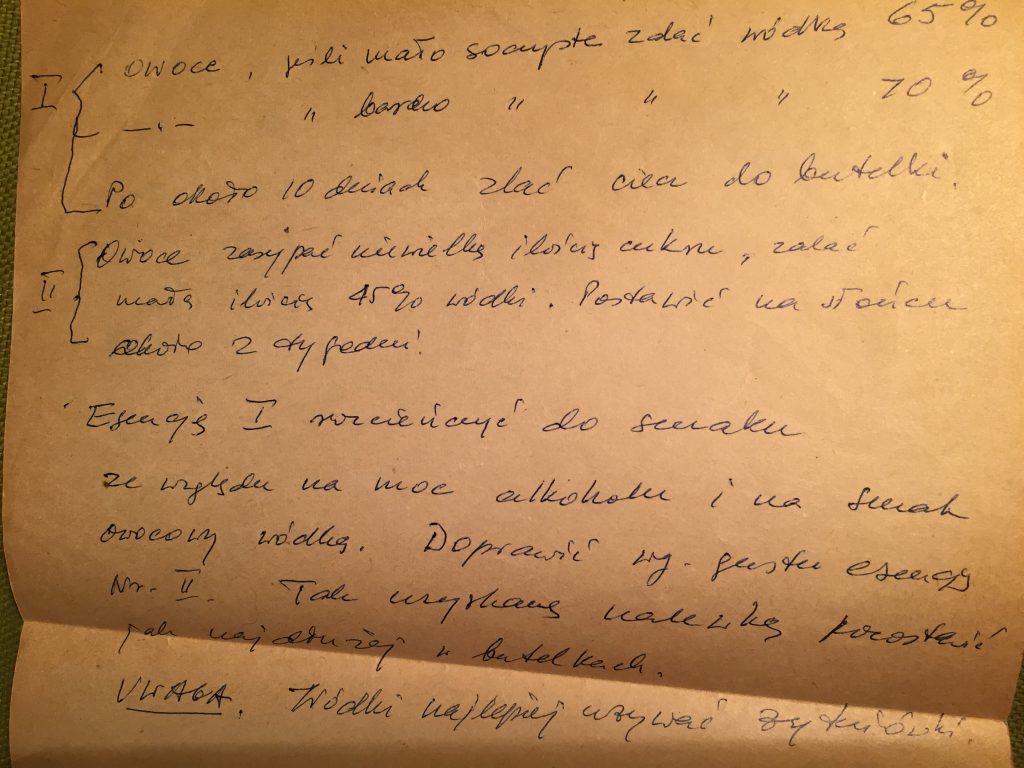 I Owoce, jeśli mało soczyste zalać wódką 65%
—„— " bardzo " " " 70%
Po około 10 dniach zlać ciecz do butelki.
II Owoce zasypać niewielką ilością cukru, zalać
małą ilością 45% wódki. Postawić na słońcu
około 2 tygodni.
Esencję I rozcieńczyć do smaku
ze względu na moc alkoholu i na smak
owocowy wódką. Doprawić wg. gustu esencją
Nr. II. Tak uzyskaną nalewkę pozostawić
jak najdłużej w butelkach.
UWAGA. Wódki najlepiej używać żytniówki.